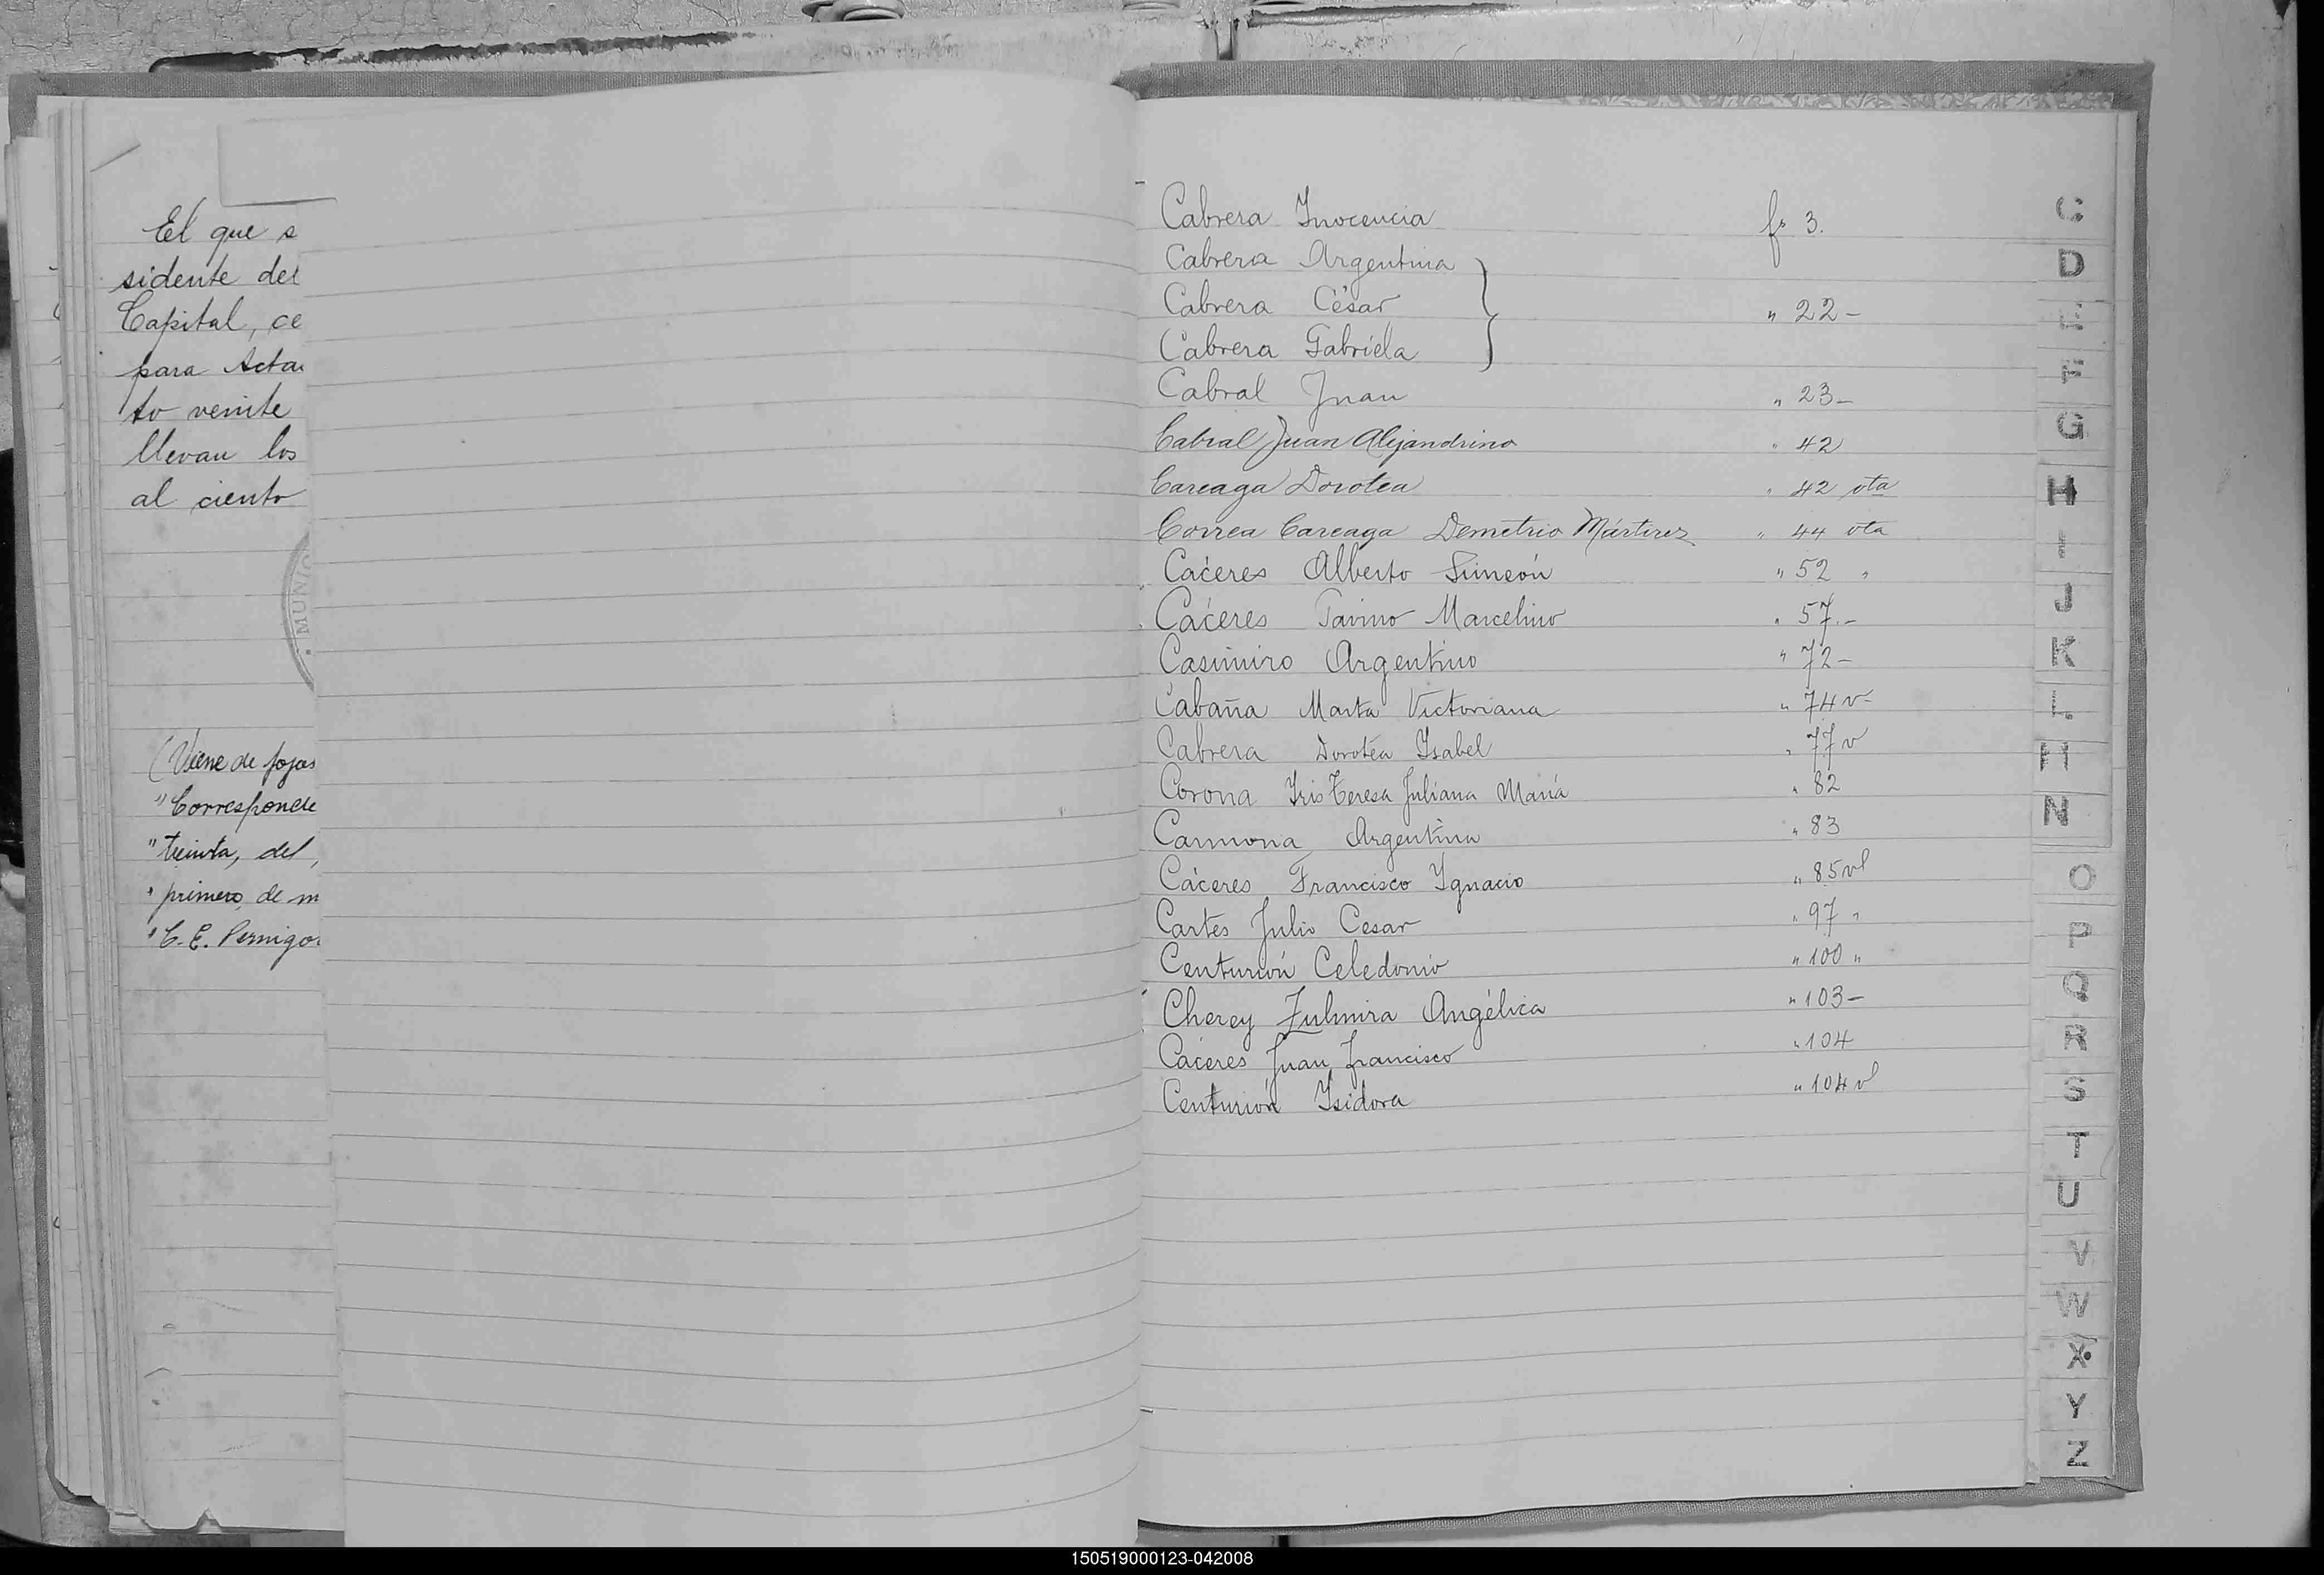 El que s
sidente del
Capital, ce
para Acta
to veinte
llevan los
al ciento
MUNIC
(Viene de fojas
"Corresponde
"treinta, del,
" primero, de m
"C. E. Pernigo
Cabrera Inocencia fs 3.
Cabrera Argentina
Cabrera César " 22 -
Cabrera Gabriela
Cabral Juan " 23 -
Cabral Juan Alejandrino " 42
Careaga Dorotea " 42 vta
Correa Careaga Demetrio Mártires " 44 vta
Cáceres Alberto Simeón " 52 "
Cáceres Marcelino " 57.-
Casimiro Argentino " 72 -
Cabaña Marta Victoriana " 74 v -
Cabrera Dorotea Isabel " 77 v
Corona Iris Teresa Juliana María " 82
Carmona Argentina " 83
Cáceres Francisco Ygnacio " 85 vl
Cartes Julio Cesar " 97 "
Centurión Celedonio " 100 "
Cherey Zulmira Angélica " 103 -
Cáceres Juan Francisco " 104
Centurión Isidora " 104 vl
C
D
E
F
G
H
I
J
K
L
M
N
O
P
Q
R
S
T
U
V
W
X
Y
Z
150519000123-042008